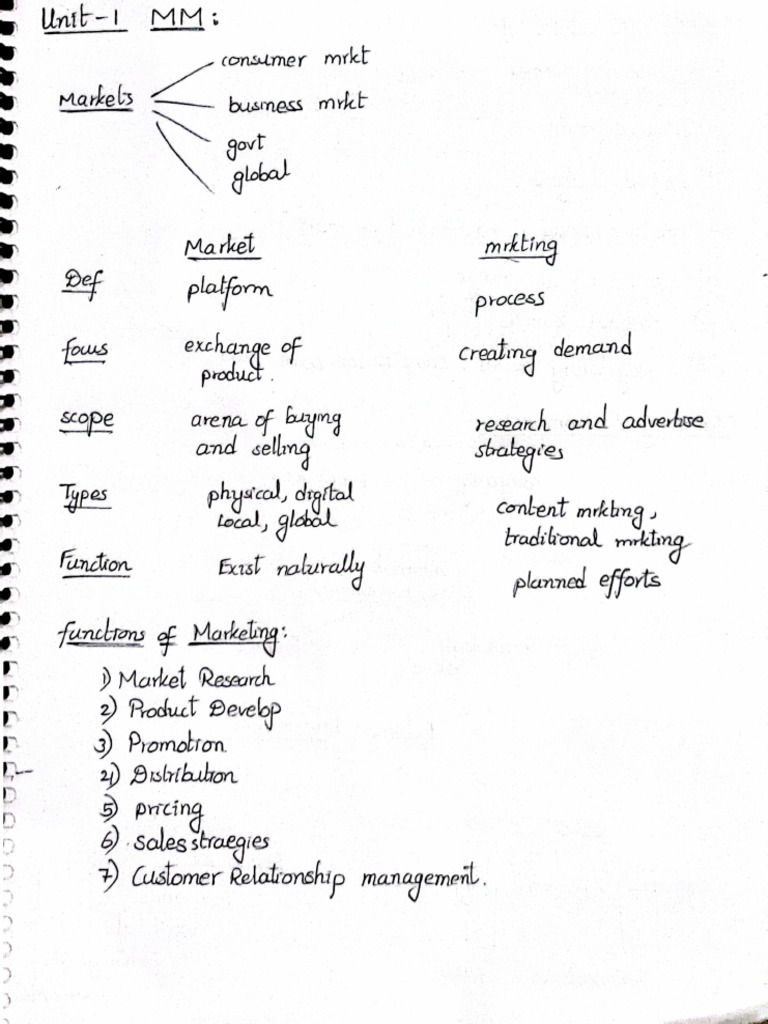 Unit-1 MM:
consumer mrkt
Markets
business mrkt
govt
global
Market mrkting
Def platform process
focus exchange of product. creating demand
scope arena of buying and selling research and advertise strategies
Types physical, digital local, global content mrkting, traditional mrkting
Function Exist naturally planned efforts
functions of Marketing:
1) Market Research
2) Product Develop
3) Promotion.
4) Distribution
5) pricing
6) sales straegies
7) Customer Relationship management.